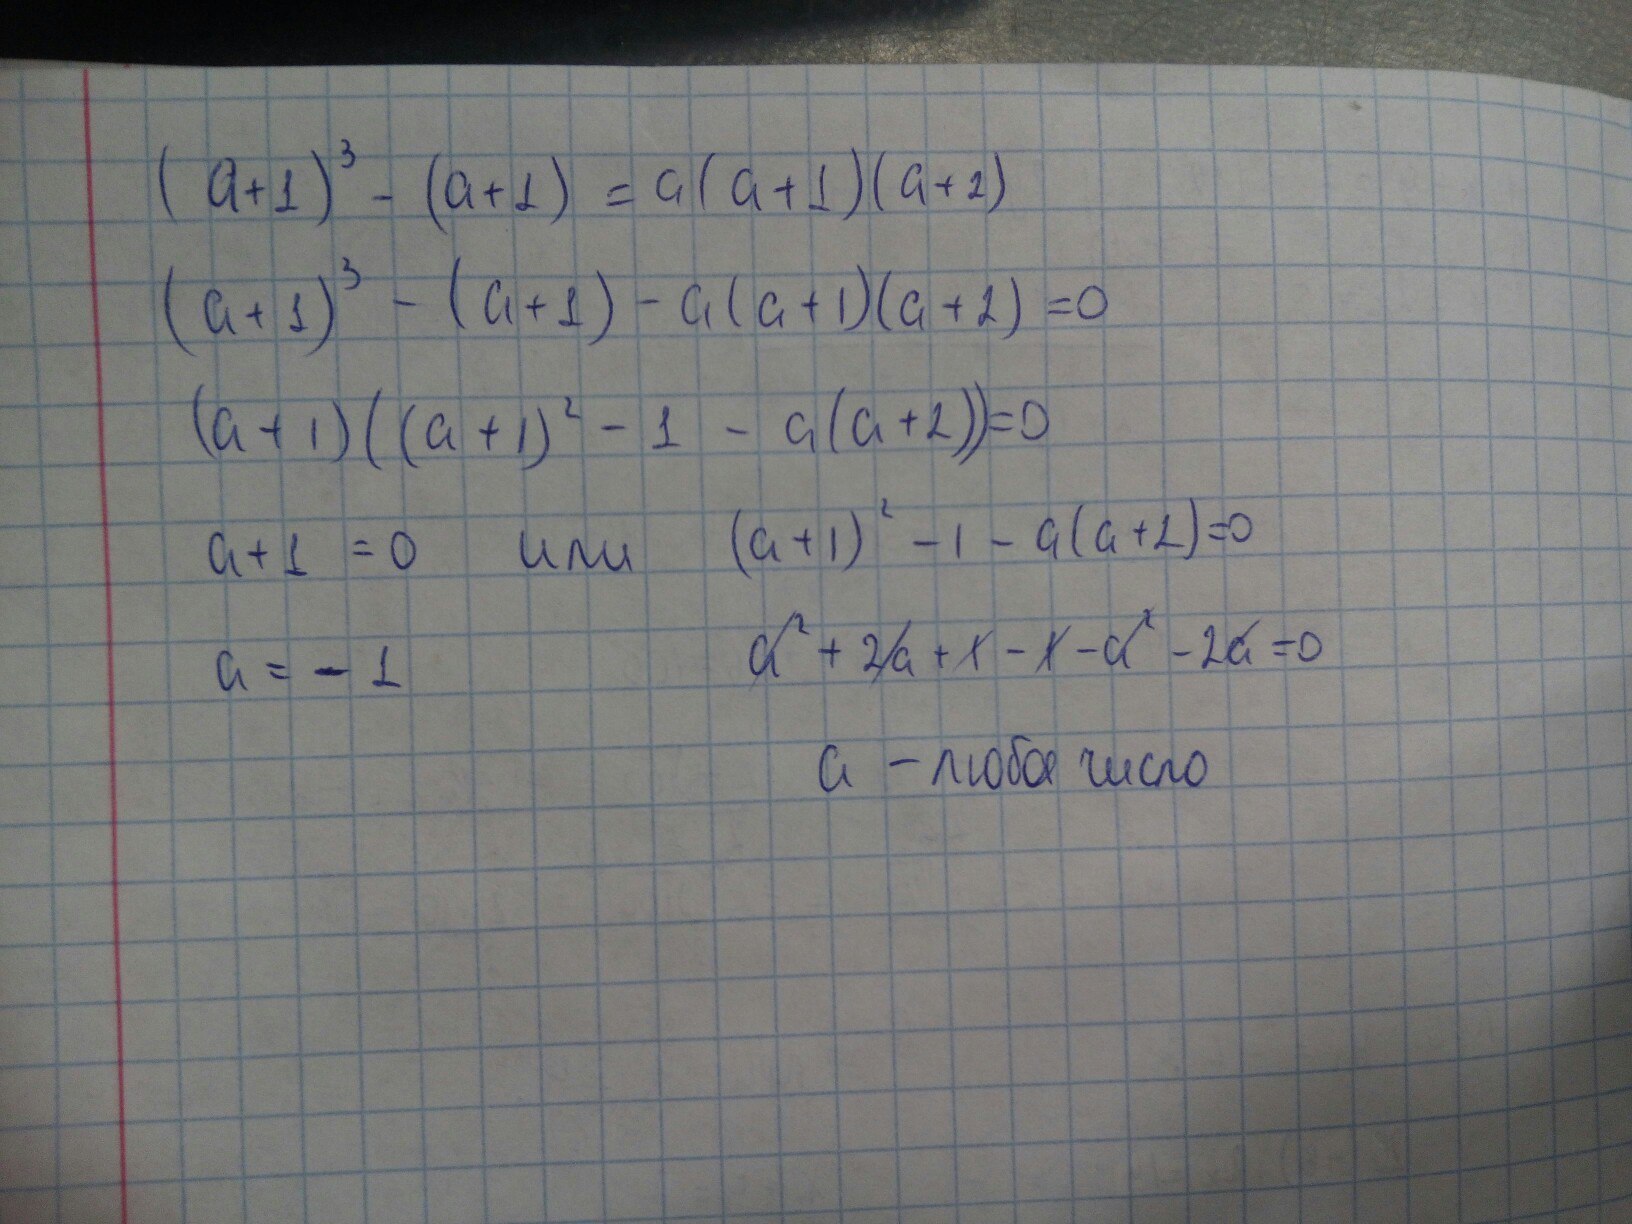 (a+1)³ - (a+1) = a(a+1)(a+2)
(a+1)³ - (a+1) - a(a+1)(a+2) = 0
(a+1)((a+1)² - 1 - a(a+2)) = 0
a+1 = 0 или (a+1)² - 1 - a(a+2) = 0
a = - 1 a² + 2a + 1 - 1 - a² - 2a = 0
a - любое число